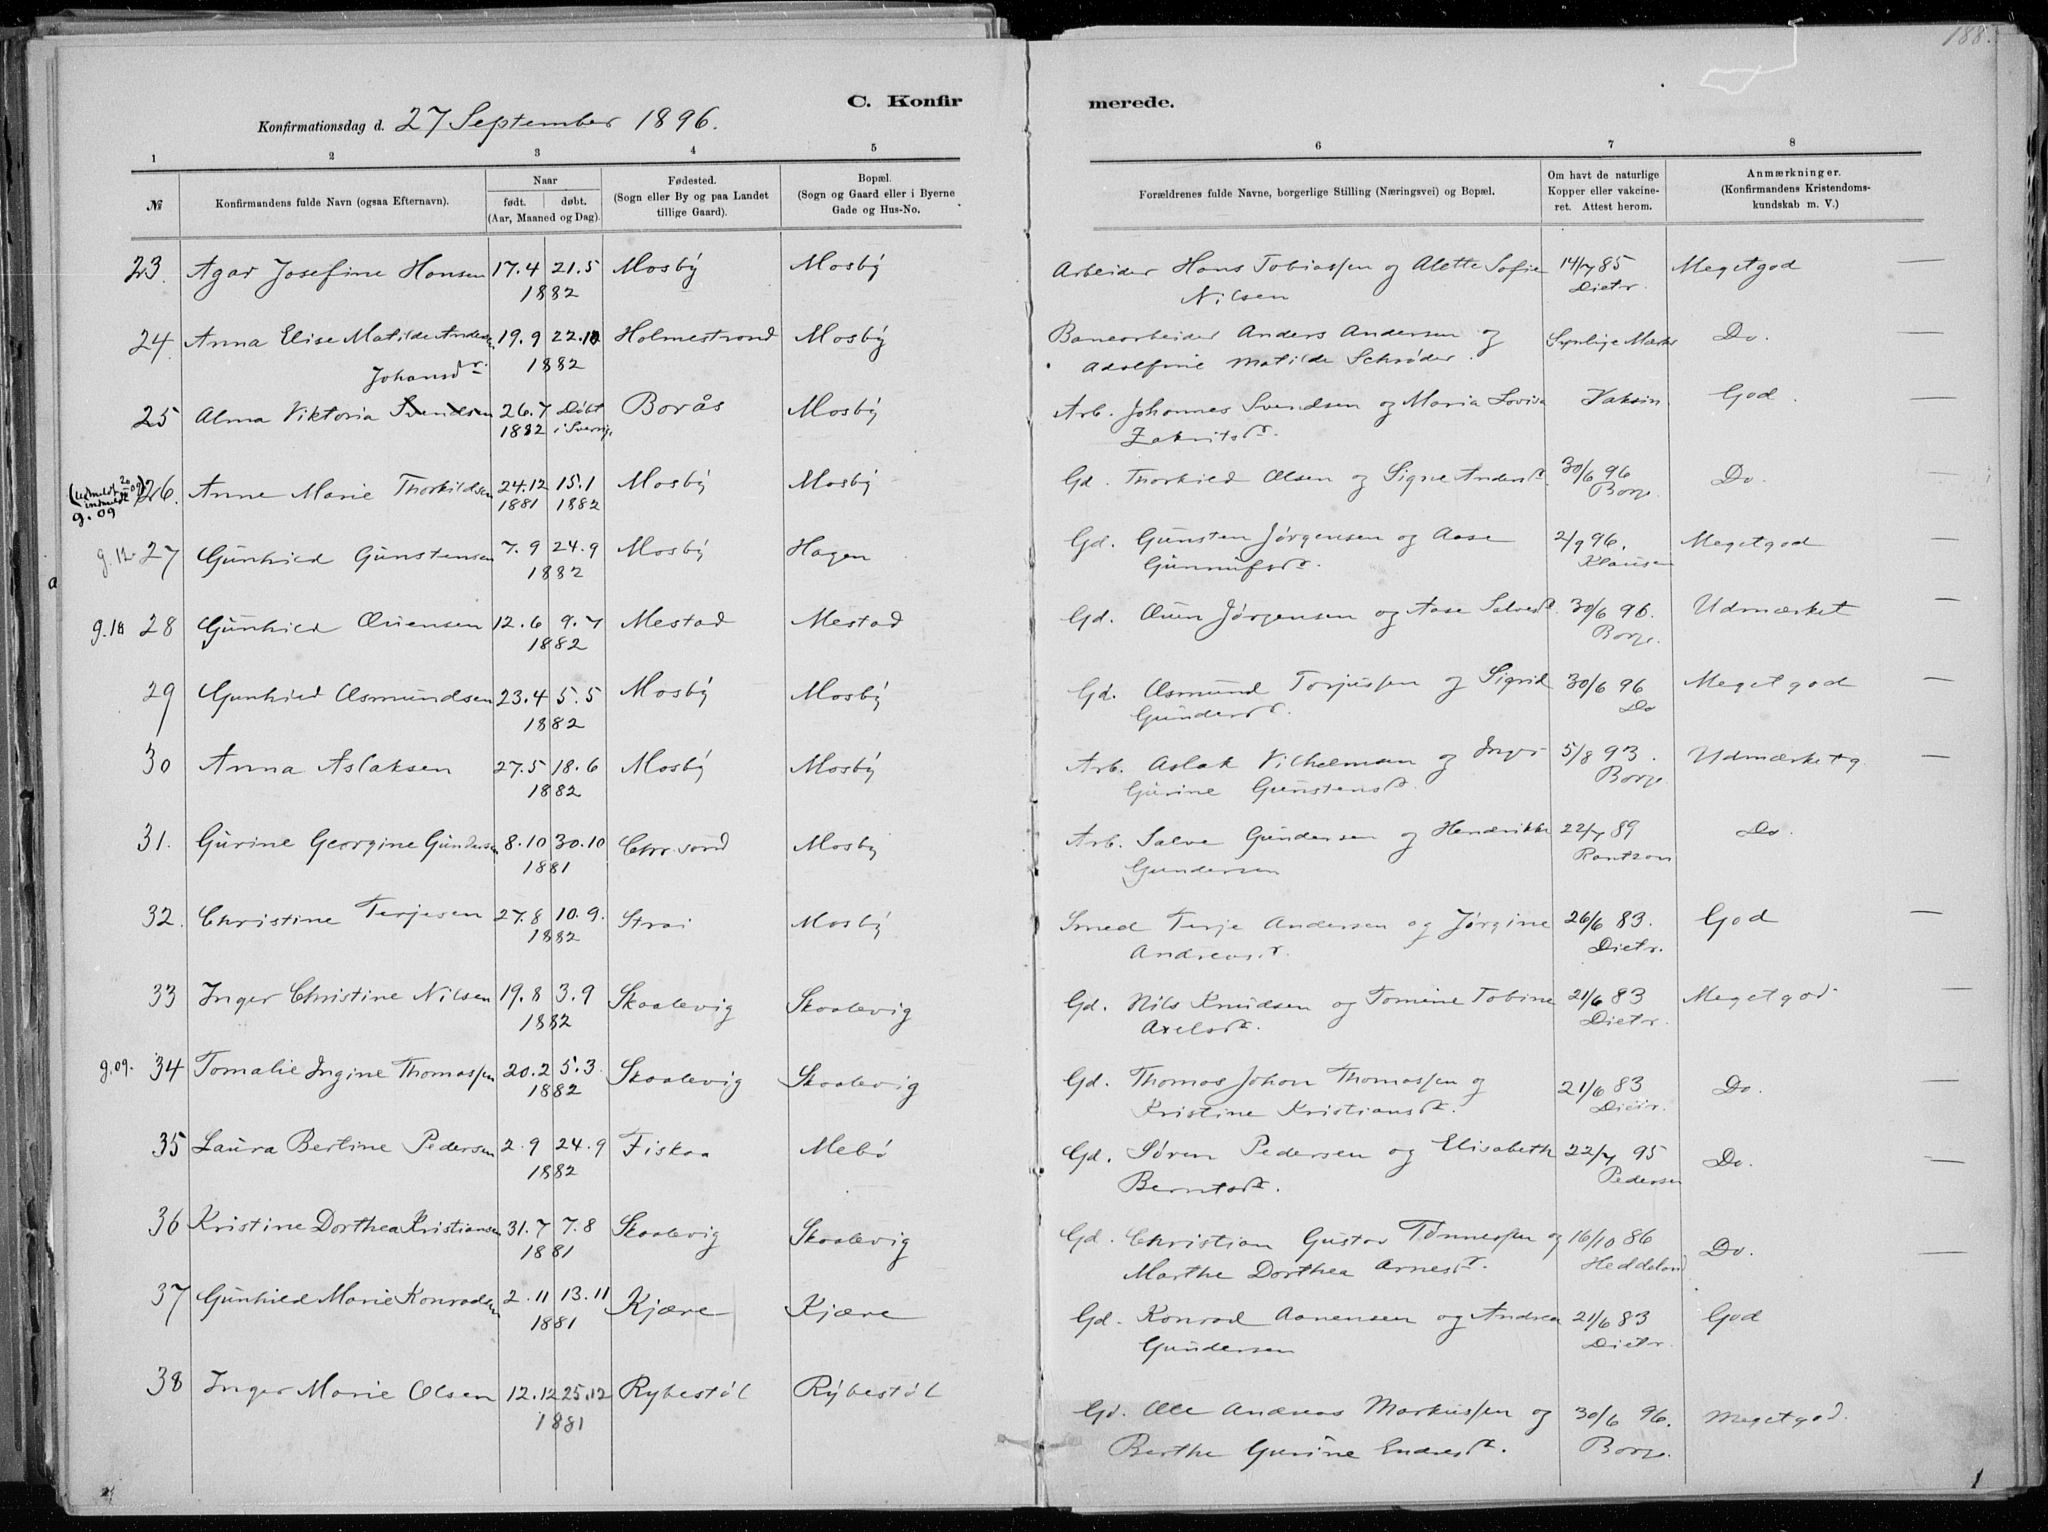 188.
C. Konfirmerede.
Konfirmationsdag d. 27 September 1896.
1 2 3 4 5 6 7 8
№ Konfirmandens fulde Navn (ogsaa Efternavn). Naar født. døbt. (Aar, Maaned og Dag). Fødested. (Sogn eller By og paa Landet tillige Gaard). Bopæl. (Sogn og Gaard eller i Byerne Gade og Hus-No. Forældrenes fulde Navne, borgerlige Stilling (Næringsvei) og Bopæl. Om havt de naturlige Kopper eller vakcineret. Attest herom. Anmærkninger. (Konfirmandens Kristendomskundskab m. V.)
23. Agar Josefine Hansen 17.4 21.5 Mosby Mosby Arbeider Hans Tobiassen og Alette Sofie 14/7 85 Megetgod —
1882 Nilsen Dietr.
24. Anna Elise Matilde Andersen 19.9 22.10 Holmestrand Mosby Banearbeider Anders Andersen og Synlige Mærker Do. —
1882 Adolfine Matilde Schrøder.
Johansdr.
25 Alma Viktoria Svendsen 26.7 Døbt Borås Mosby Arb. Johannes Svendsen og Maria Lovisa Vaksin God. —
1882 i Sverig. Zakritsdr.
(Udmeldt 20 09) indmeldt g. 09
26. Anne Marie Thorkildsen 24.12 15.1 Mosby Mosby Gd. Thorkild Olsen og Signe Andersdr. 30/6 96 Do. —
1881 1882 Borge.
g. 12. 27 Gunhild Gunstensen 7.9 24.9 Mosby Hagen Gd. Gunsten Jørgensen og Aase 2/9 96. Megetgod —
1882 Gunnufsdr. Klausen
g.18 28 Gunhild Ouensen 12.6 9.7 Mestad Mestad Gd. Ouen Jørgensen og Aase Salvesdr. 30/6 96. Udmærket —
1882 Borge.
29 Gunhild Osmundsen 23.4 5.5 Mosby Mosby Gd. Osmund Torjussen og Sigrid 30/6 96 Meget god —
1882 Gundersdr. Do
30 Anna Aslaksen 27.5 18.6 Mosby Mosby Arb. Aslak Vilhelmsen og Inger 5/8 93. Udmærket g. —
1882 Gurine Gunstensdr. Borge
31. Gurine Georgine Gundersen 8.10 30.10 Chr.sand Mosby Arb. Salve Gundersen og Hendrikke 22/7 89 Do. —
1881 Gundersen Rantzon
32. Christine Terjesen 27.8 10.9. Strai Mosby Smed Terje Andersen og Jørgine 26/6 83. God —
1882 Andreasdr. Dietr.
33 Inger Christine Nilsen 19.8 3.9 Skaalevig Skaalevig Gd. Nils Knudsen og Tomine Tobine 21/6 83 Megetgod —
1882 Axelsdr. Dietr.
g.09. 34 Tomalie Ingine Thomassen 20.2 5.3. Skaalevig Skaalevig Gd. Thomas Johan Thomassen og 21/6 83 Do. —
1882 Kristine Kristiansdr. Dietr.
35 Laura Bertine Pedersen 2.9 24.9 Fiskaa Mebø Gd. Søren Pedersen og Elisabeth 22/7 95 Do. —
1882 Berntsdr. Pedersen
36 Kristine Dorthea Kristiansen 31.7 7.8 Skaalevig Skaalevig Gd. Christian Gustav Tønnessen og 16/10 86 Do. —
1881 Marthe Dorthea Arnesdr. Heddeland
37 Gunhild Marie Konradsen 2.11 13.11 Kjære Kjære Gd. Konrad Aanensen og Andrea 21/6 83 God —
1881 Gundersen Dietr.
38 Inger Marie Olsen 12.12 25.12 Rybestøl Rybestøl Gd. Ole Andreas Markussen og 30/6 96. Megetgod. —
1881 Berthe Gurine Endresdr. Borge.